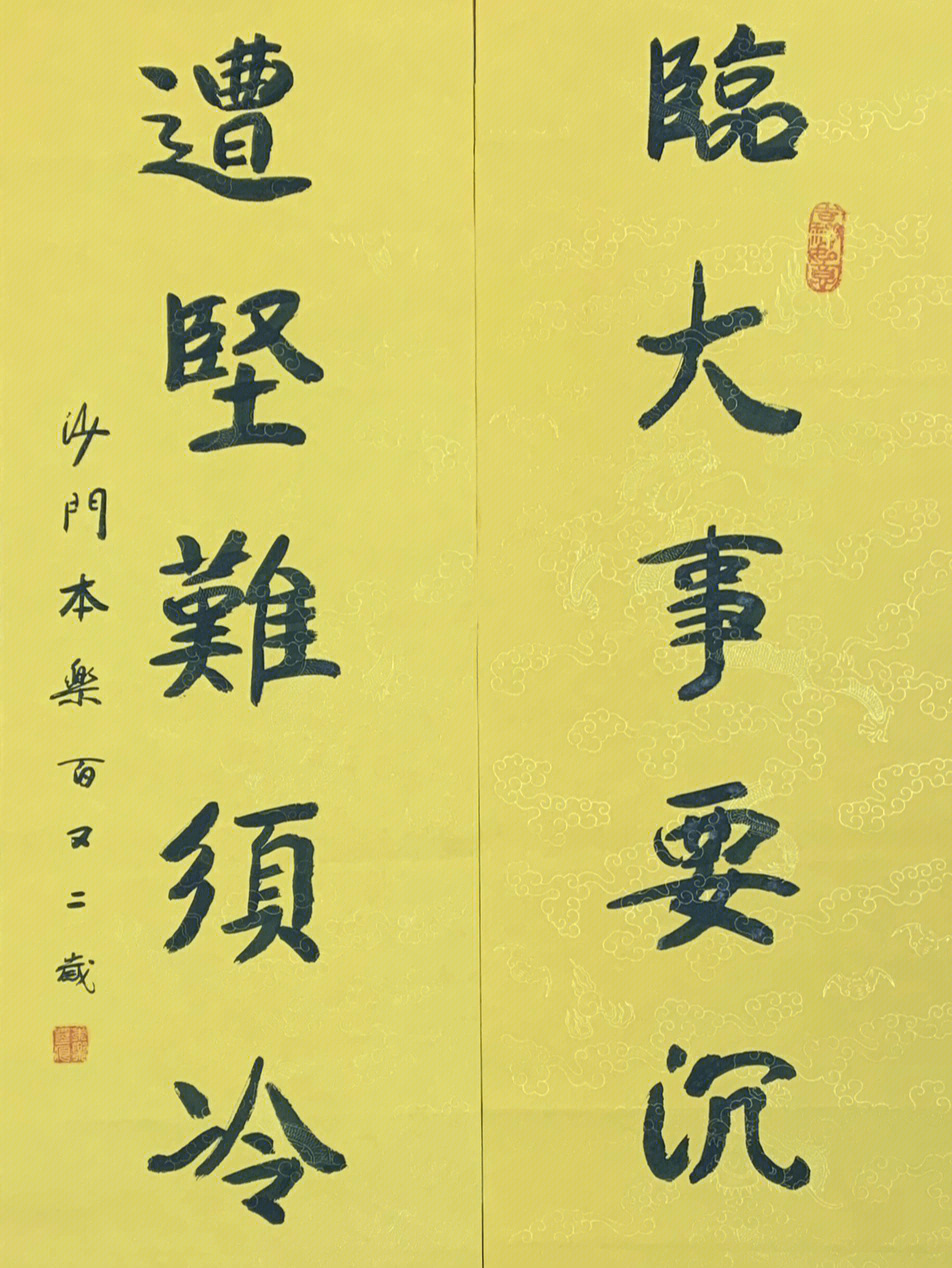 臨大事要沉
遭堅難須冷
沙門本樂百又二歲